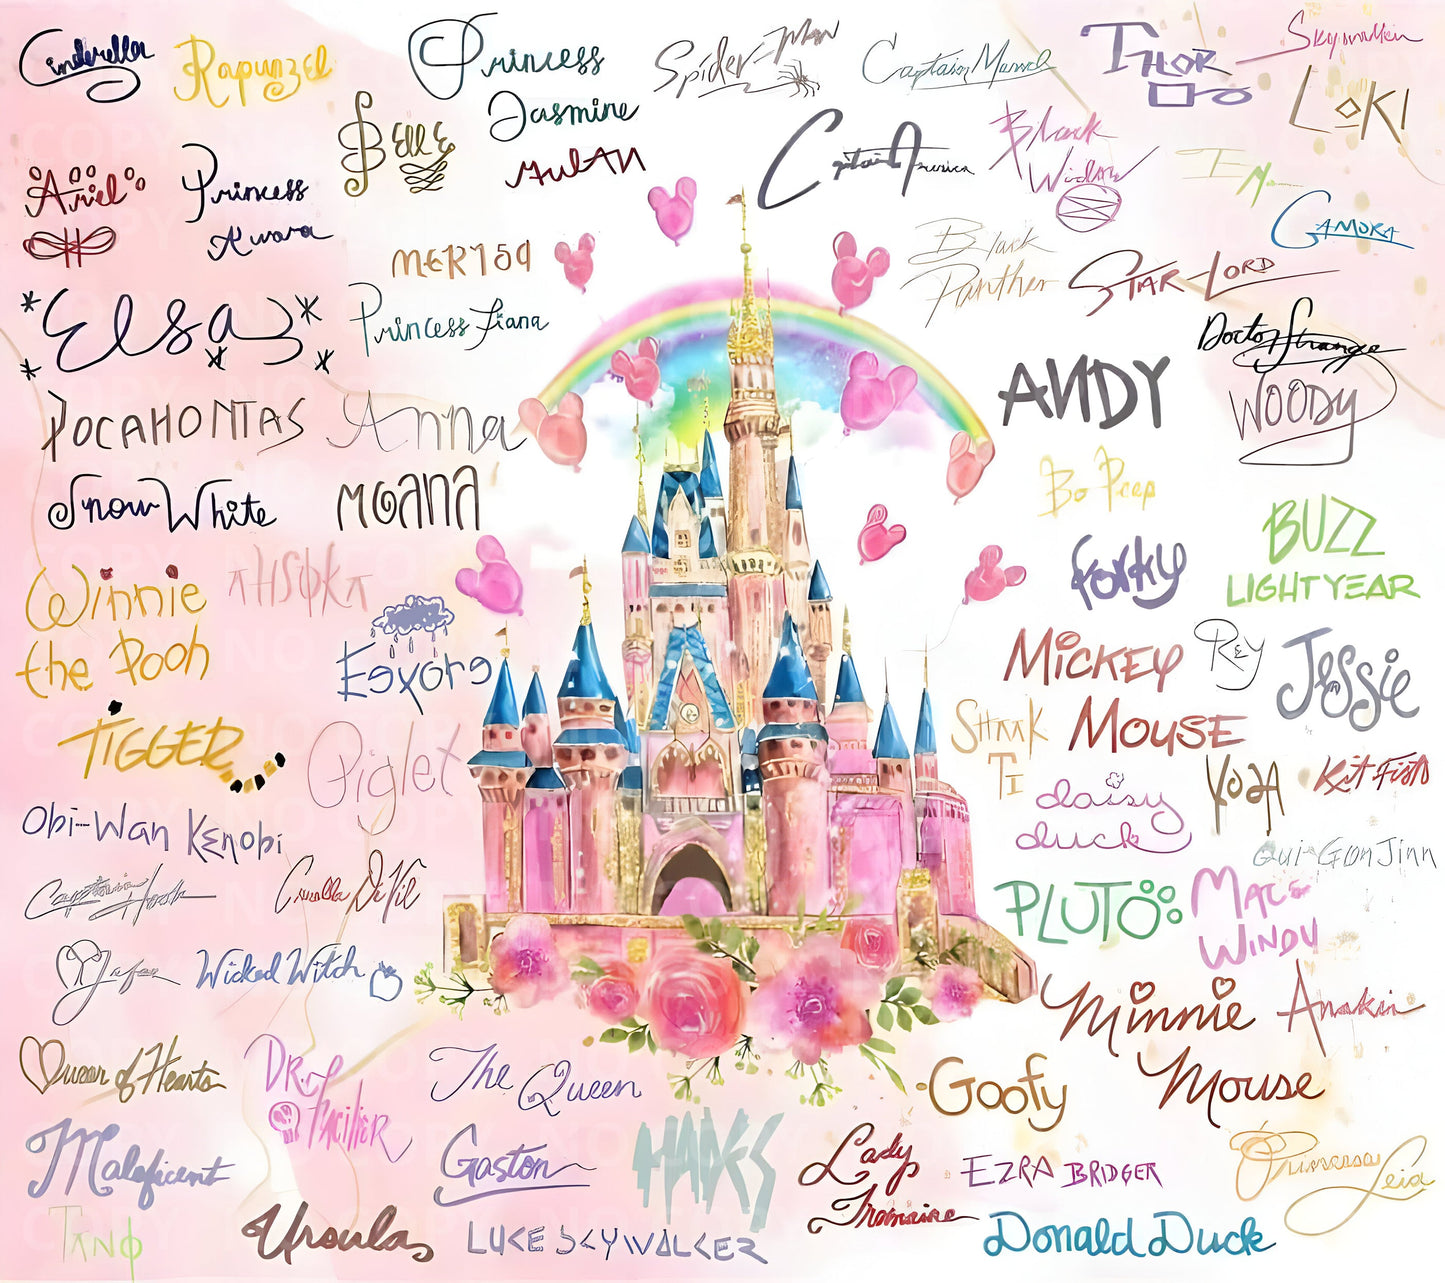 Cinderella
Rapunzel
Princess
Jasmine
Spider-Man
Captain Marvel
THOR
Skywalker
LOKI
Belle
MULAN
Captain America
Black
Widow
Ariel
Princess
Aurora
GAMORA
MERIDA
Black
Panther
STAR-LORD
Elsa
Princess Tiana
Doctor Strange
ANDY
WOODY
POCAHONTAS
Anna
Snow White
MOANA
Bo Peep
BUZZ
LIGHTYEAR
AHSOKA
forky
Winnie
the Pooh
Eeyore
MICKEY
MOUSE
REY
JESSIE
TIGGER
Piglet
SHAAK
TI
YODA
Kit Fisto
daisy
duck
Obi-Wan Kenobi
Qui-Gon Jinn
Captain Hook
Cruella De Vil
PLUTO
MACE
WINDU
Jafar
Wicked Witch
Minnie
Mouse
Anakin
Queen of Hearts
DR.
Facilier
The Queen
Goofy
Maleficent
Gaston
HADES
Lady
Tremaine
EZRA BRIDGER
Princess
Leia
TANO
Ursula
LUKE SKYWALKER
Donald Duck